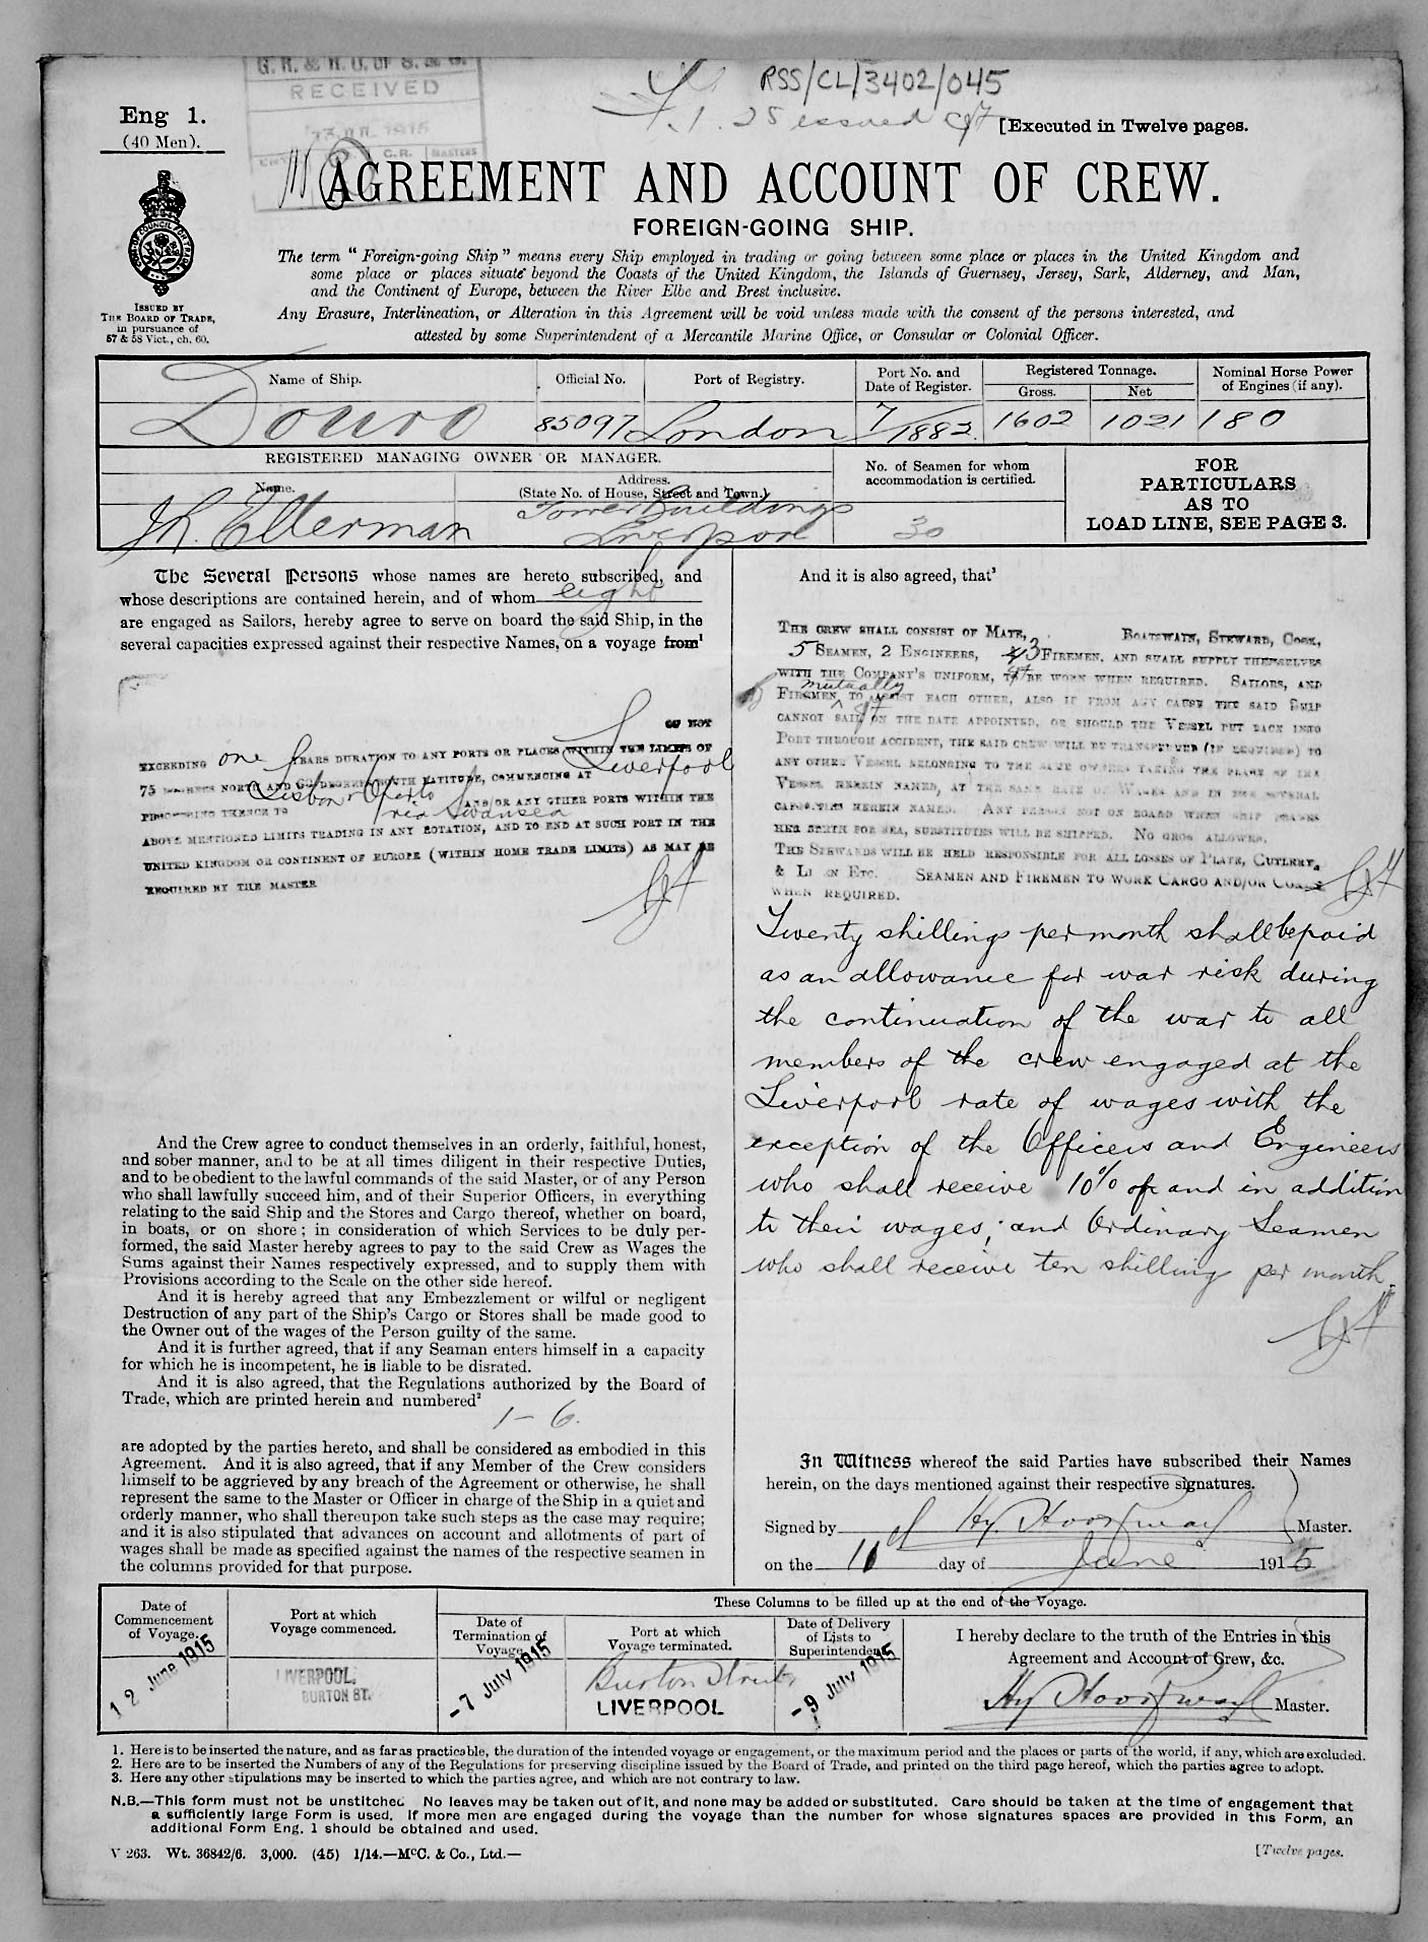 G. R. & R. O. OF S. & S.
RECEIVED
1915
C.R. MASTERS
RSS/CL/3402/045
1. 25 issued
Eng 1.
(40 Men).
[Executed in Twelve pages.
AGREEMENT AND ACCOUNT OF CREW.
FOREIGN-GOING SHIP.
ISSUED BY
THE BOARD OF TRADE,
in pursuance of
57 & 58 Vict., ch. 60.
The term "Foreign-going Ship" means every Ship employed in trading or going between some place or places in the United Kingdom and
some place or places situate beyond the Coasts of the United Kingdom, the Islands of Guernsey, Jersey, Sark, Alderney, and Man,
and the Continent of Europe, between the River Elbe and Brest inclusive.
Any Erasure, Interlineation, or Alteration in this Agreement will be void unless made with the consent of the persons interested, and
attested by some Superintendent of a Mercantile Marine Office, or Consular or Colonial Officer.
Name of Ship. Official No. Port of Registry. Port No. and Date of Register. Registered Tonnage. Gross. Net Nominal Horse Power of Engines (if any).
Douro 85097 London 7/1882. 1602 1021 180
REGISTERED MANAGING OWNER OR MANAGER.
Name. Address. (State No. of House, Street and Town.)
No. of Seamen for whom accommodation is certified.
FOR
PARTICULARS
AS TO
LOAD LINE, SEE PAGE 3.
Ellerman Tower Buildings
Liverpool 30
The Several Persons whose names are hereto subscribed, and
whose descriptions are contained herein, and of whom eight
are engaged as Sailors, hereby agree to serve on board the said Ship, in the
several capacities expressed against their respective Names, on a voyage from¹
OF NOT
EXCEEDING one YEARS DURATION TO ANY PORTS OR PLACES WITHIN THE LIMITS OF
75 DEGREES NORTH AND 60 DEGREES SOUTH LATITUDE, COMMENCING AT Liverpool
PROCEEDING THENCE TO Lisbon & Oporto via Swansea AND/OR ANY OTHER PORTS WITHIN THE
ABOVE MENTIONED LIMITS TRADING IN ANY ROTATION, AND TO END AT SUCH PORT IN THE
UNITED KINGDOM OR CONTINENT OF EUROPE (WITHIN HOME TRADE LIMITS) AS MAY BE
REQUIRED BY THE MASTER
And the Crew agree to conduct themselves in an orderly, faithful, honest,
and sober manner, and to be at all times diligent in their respective Duties,
and to be obedient to the lawful commands of the said Master, or of any Person
who shall lawfully succeed him, and of their Superior Officers, in everything
relating to the said Ship and the Stores and Cargo thereof, whether on board,
in boats, or on shore; in consideration of which Services to be duly per-
formed, the said Master hereby agrees to pay to the said Crew as Wages the
Sums against their Names respectively expressed, and to supply them with
Provisions according to the Scale on the other side hereof.
And it is hereby agreed that any Embezzlement or wilful or negligent
Destruction of any part of the Ship's Cargo or Stores shall be made good to
the Owner out of the wages of the Person guilty of the same.
And it is further agreed, that if any Seaman enters himself in a capacity
for which he is incompetent, he is liable to be disrated.
And it is also agreed, that the Regulations authorized by the Board of
Trade, which are printed herein and numbered²
1-6.
are adopted by the parties hereto, and shall be considered as embodied in this
Agreement. And it is also agreed, that if any Member of the Crew considers
himself to be aggrieved by any breach of the Agreement or otherwise, he shall
represent the same to the Master or Officer in charge of the Ship in a quiet and
orderly manner, who shall thereupon take such steps as the case may require;
and it is also stipulated that advances on account and allotments of part of
wages shall be made as specified against the names of the respective seamen in
the columns provided for that purpose.
And it is also agreed, that³
THE CREW SHALL CONSIST OF MATE, BOATSWAIN, STEWARD, COOK,
5 SEAMEN, 2 ENGINEERS, 3 FIREMEN, AND SHALL SUPPLY THEMSELVES
WITH THE COMPANY'S UNIFORM, TO BE WORN WHEN REQUIRED. SAILORS, AND
FIREMEN, TO mutually ASSIST EACH OTHER, ALSO IF FROM ANY CAUSE THE SAID SHIP
CANNOT SAIL ON THE DATE APPOINTED, OR SHOULD THE VESSEL PUT BACK INTO
PORT THROUGH ACCIDENT, THE SAID CREW WILL BE TRANSFERRED (IF REQUIRED) TO
ANY OTHER VESSEL BELONGING TO THE SAME OWNERS TAKING THE PLACE OF THE
VESSEL HEREIN NAMED, AT THE SAME RATE OF WAGES AND IN THE SEVERAL
CAPACITIES HEREIN NAMED. ANY PERSON NOT ON BOARD WHEN SHIP LEAVES
HER BERTH FOR SEA, SUBSTITUTES WILL BE SHIPPED. NO GROG ALLOWED.
THE STEWARDS WILL BE HELD RESPONSIBLE FOR ALL LOSSES OF PLATE, CUTLERY,
& LINEN ETC. SEAMEN AND FIREMEN TO WORK CARGO AND/OR COALS
WHEN REQUIRED.
Twenty shillings per month shall be paid
as an allowance for war risk during
the continuation of the war to all
members of the crew engaged at the
Liverpool rate of wages with the
exception of the Officers and Engineers
who shall receive 10% of and in addition
to their wages; and Ordinary Seamen
who shall receive ten shillings per month.
In Witness whereof the said Parties have subscribed their Names
herein, on the days mentioned against their respective signatures.
Signed by Hy. Master.
on the 11 day of June 1915
Date of Commencement of Voyage. Port at which Voyage commenced. These Columns to be filled up at the end of the Voyage.
Date of Termination of Voyage. Port at which Voyage terminated. Date of Delivery of Lists to Superintendent. I hereby declare to the truth of the Entries in this
Agreement and Account of Crew, &c.
12 June 1915 LIVERPOOL. BURTON ST. -7 July 1915 Burton Street LIVERPOOL -9 July 1915 Hy Master.
1. Here is to be inserted the nature, and as far as practicable, the duration of the intended voyage or engagement, or the maximum period and the places or parts of the world, if any, which are excluded.
2. Here are to be inserted the Numbers of any of the Regulations for preserving discipline issued by the Board of Trade, and printed on the third page hereof, which the parties agree to adopt.
3. Here any other stipulations may be inserted to which the parties agree, and which are not contrary to law.
N.B.—This form must not be unstitched No leaves may be taken out of it, and none may be added or substituted. Care should be taken at the time of engagement that
a sufficiently large Form is used. If more men are engaged during the voyage than the number for whose signatures spaces are provided in this Form, an
additional Form Eng. 1 should be obtained and used.
V 263. Wt. 36842/6. 3,000. (45) 1/14.—McC. & Co., Ltd.—
[Twelve pages.